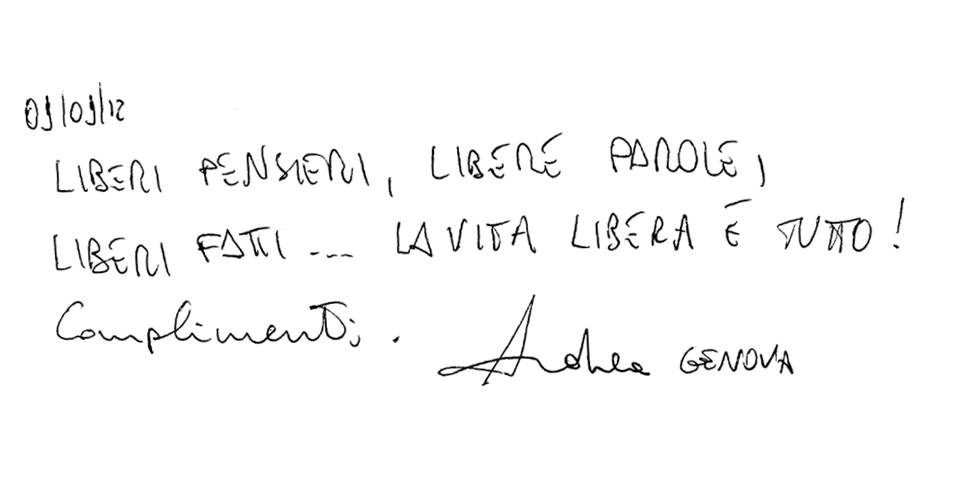 09/09/12
LIBERI PENSIERI, LIBERE PAROLE,
LIBERI FATTI.... LA VITA LIBERA È TUTTO!
Complimenti.
Andrea GENOVA